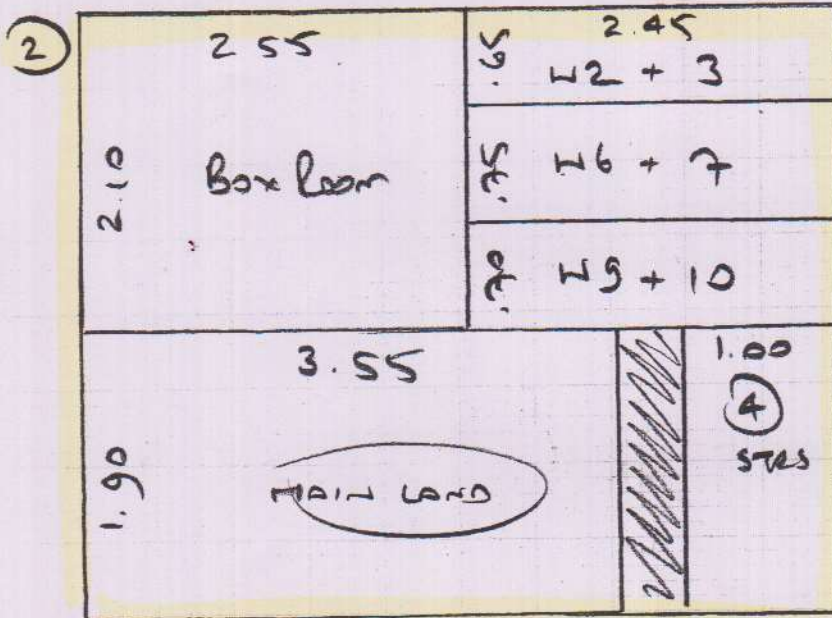 2
2 55
2.10
Box Room
2.45
.65
W2 + 3
.75
W6 + 7
.70
W9 + 10
3.55
1.90
MAIN LAND
1.00
4
STRS